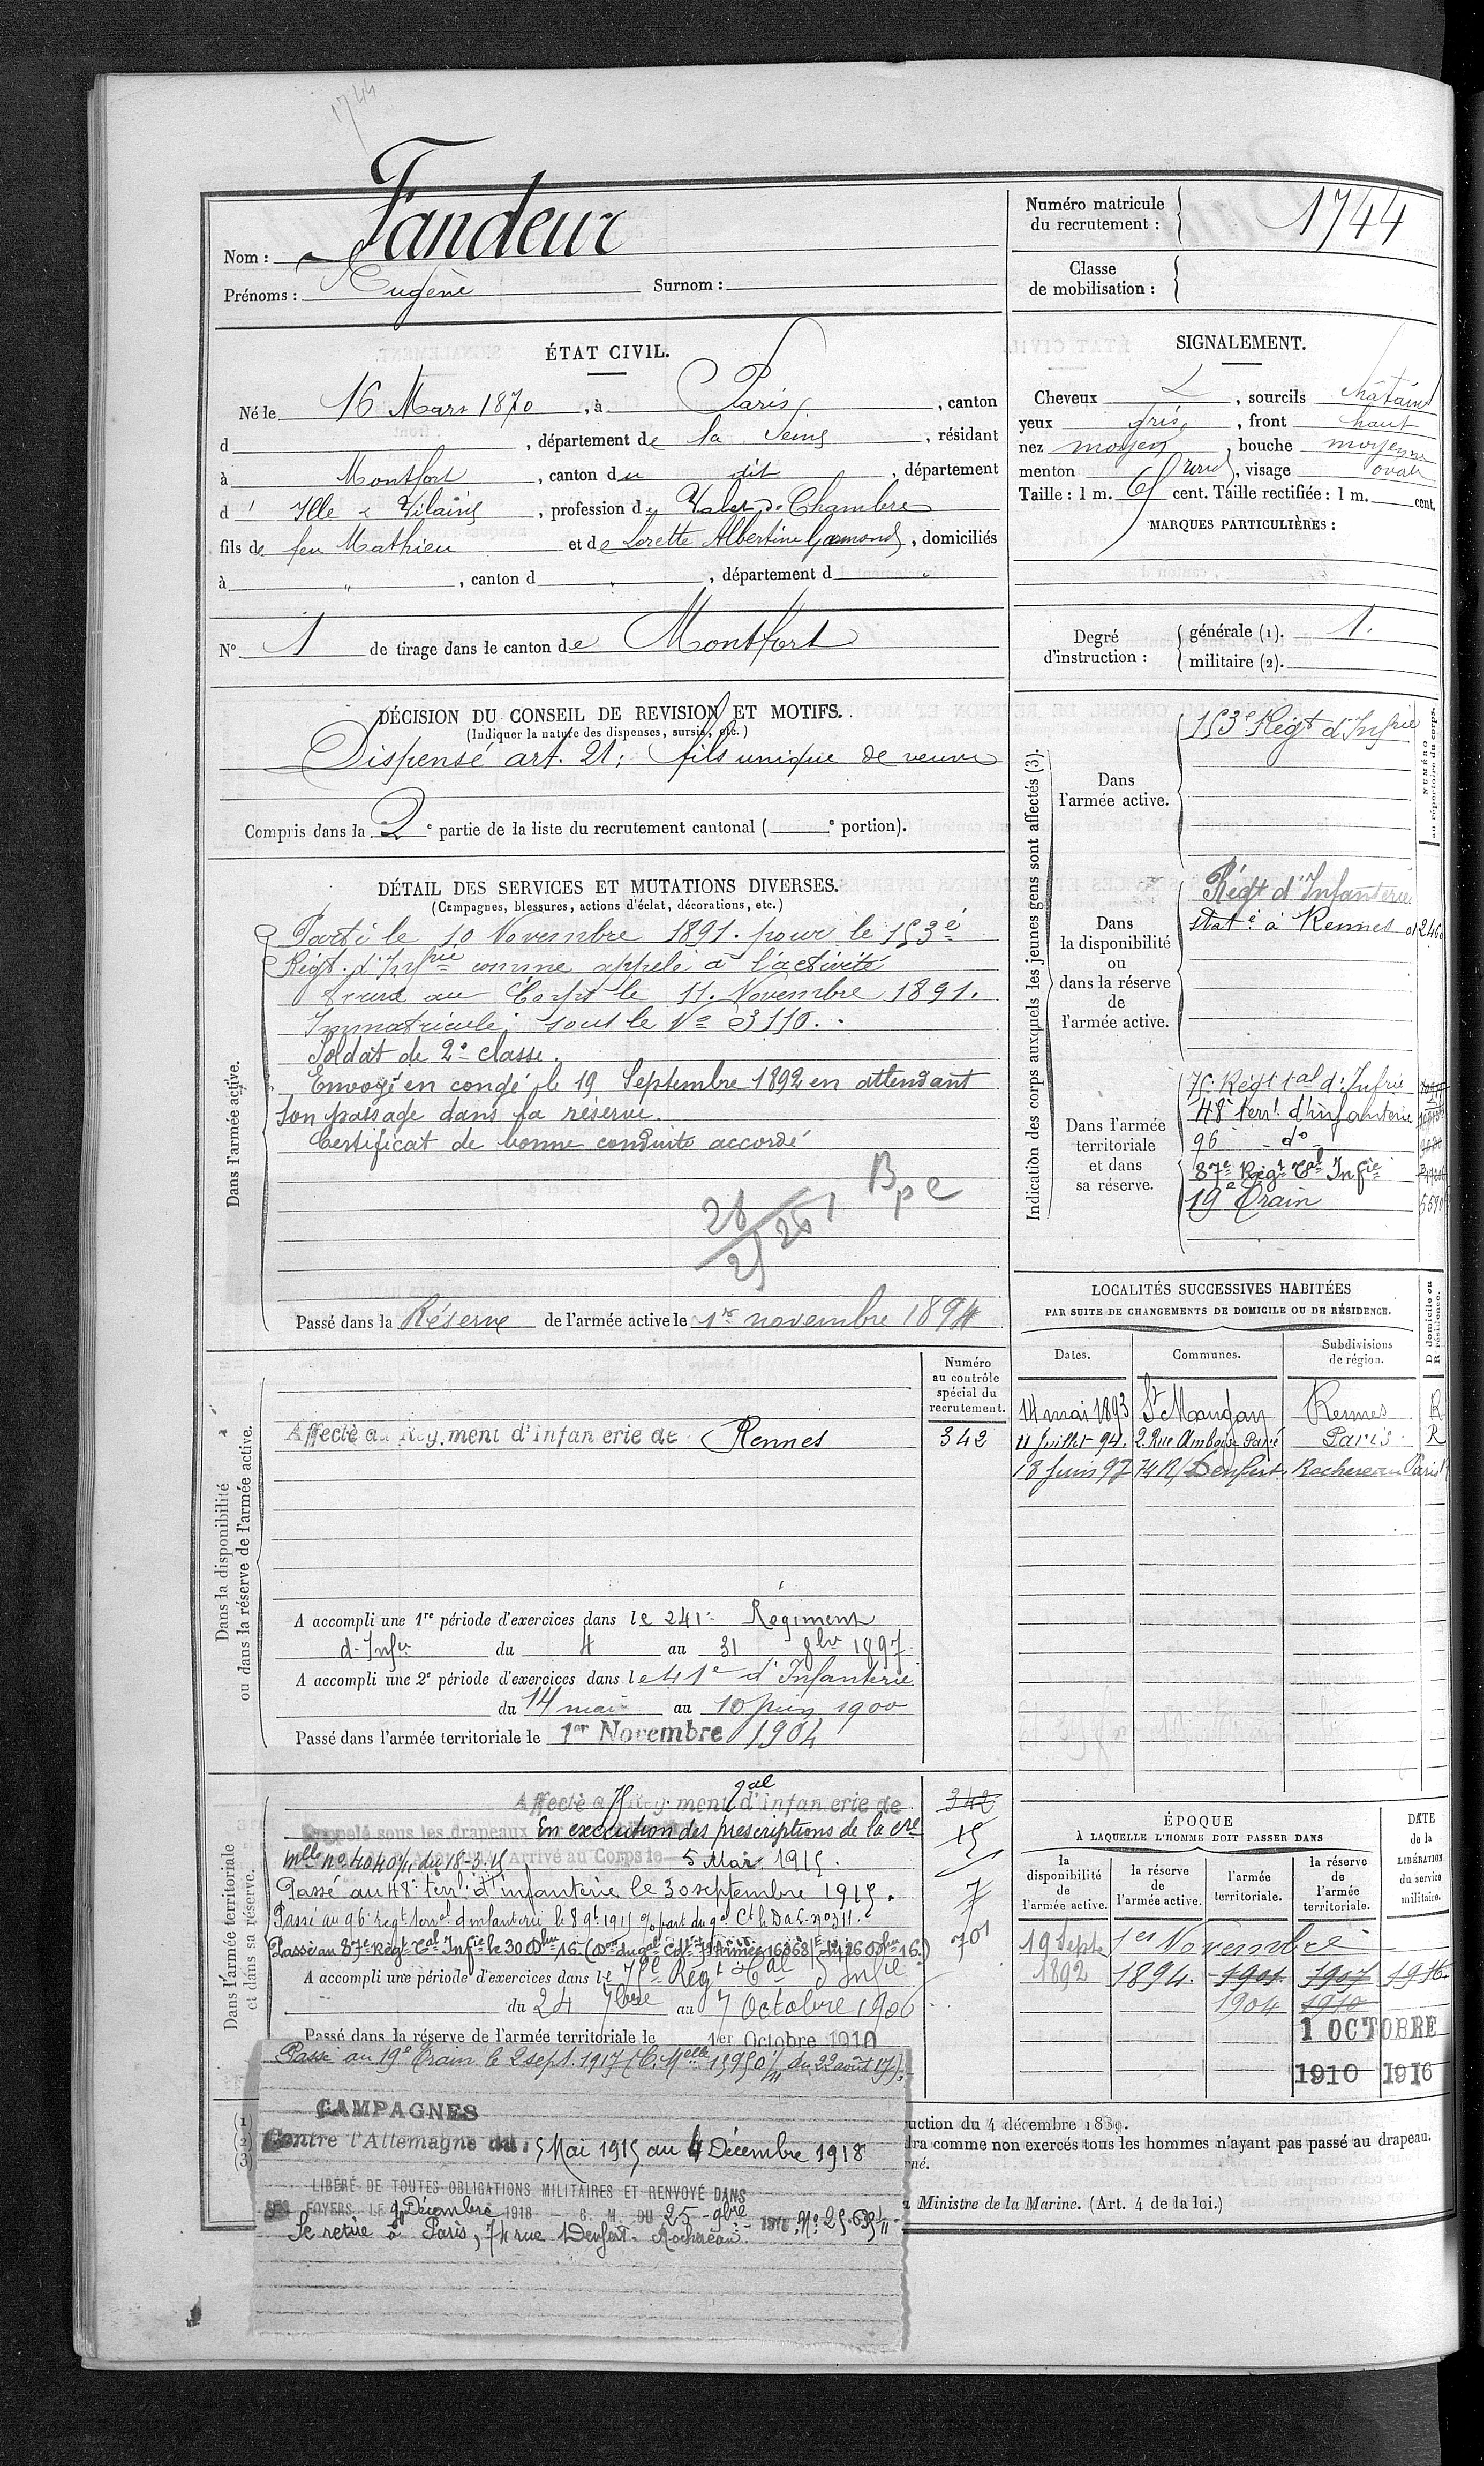 1744
Nom : Fandeur
Prénoms : Eugène Surnom :
Numéro matricule du recrutement : 1744
Classe de mobilisation :
ÉTAT CIVIL.
Né le 16 Mars 1870, à Paris, canton
d , département de la Seine, résidant
à Montfort, canton du dit, département
d' Ille & Vilaine, profession de Valet de Chambre
fils de feu Mathieu et de Lorette Albertine , domiciliés
à " , canton d " , département d "
N° 1 de tirage dans le canton de Montfort
SIGNALEMENT.
Cheveux & , sourcils châtains
yeux gris, front haut
nez moyen, bouche moyenne
menton rond, visage ovale
Taille : 1 m. cent. Taille rectifiée : 1 m. cent.
MARQUES PARTICULIÈRES :
Degré d'instruction :
générale (1). 1.
militaire (2).
DÉCISION DU CONSEIL DE REVISION ET MOTIFS.
(Indiquer la nature des dispenses, sursis, etc.)
Dispensé art. 21 : fils unique de veuve
Compris dans la 2e partie de la liste du recrutement cantonal ( e portion).
DÉTAIL DES SERVICES ET MUTATIONS DIVERSES.
(Campagnes, blessures, actions d'éclat, décorations, etc.)
Dans l'armée active.
Parti le 10 Novembre 1891. pour le 153e
Régt. d'Infrie comme appelé à l'activité
Arrivé au Corps le 11. Novembre 1891.
Immatriculé sous le No 3110.
Soldat de 2e classe.
Envoyé en congé le 19 Septembre 1892 en attendant
son passage dans la réserve.
Certificat de bonne conduite accordé
Passé dans la Réserve de l'armée active le 1er novembre 1894
Indication des corps auxquels les jeunes gens sont affectés (3).
NUMÉRO au répertoire du corps.
Dans l'armée active.
153e Régt d'Infrie
Dans la disponibilité ou dans la réserve de l'armée active.
Régt d'Infanterie
statné à Rennes
Dans l'armée territoriale et dans sa réserve.
75e Régt tal d'Infrie
48e terrl d'infanterie
96 - do -
87e Régt Tal Infie
19e Train
LOCALITÉS SUCCESSIVES HABITÉES
PAR SUITE DE CHANGEMENTS DE DOMICILE OU DE RÉSIDENCE.
Dates. Communes. Subdivisions de région. D domicile ou R résidence.
14 mai 1893 St Maugan Rennes R
11 Juillet 94. 2. Rue Ambroise Paré Paris R
18 Juin 97 74 R. Denfert Rochereau Paris
Dans la disponibilité ou dans la réserve de l'armée active.
Numéro au contrôle spécial du recrutement.
Affecté au Régiment d'Infanterie de Rennes 342
A accompli une 1re période d'exercices dans le 241e Régiment
d'Infie du 4 au 31 8bre 1897
A accompli une 2e période d'exercices dans le 41e d'Infanterie
du 14 mai au 10 juin 1900
Passé dans l'armée territoriale le 1er Novembre 1904
Dans l'armée territoriale et dans sa réserve.
Affecté au Régiment tal d'infanterie de 342
Rappelé sous les drapeaux En exécution des prescriptions de la Cre
Arrivé au Corps le 5 Mai 1915.
Passé au 48e terrl d'infanterie le 30 septembre 1915.
Passé au 87e Régt Tal Infie le 30 16
A accompli une période d'exercices dans le 75e Régt Tal d'Infie
du 24 7bre au 7 Octobre 1906
Passé dans la réserve de l'armée territoriale le 1er Octobre 1910
Passé au 19e Train le 2 sept. 1917 (C. Melle du 22 août 17).
CAMPAGNES
Contre l'Allemagne du 5 Mai 1915 au 4 Décembre 1918
LIBÉRÉ DE TOUTES OBLIGATIONS MILITAIRES ET RENVOYÉ DANS
SES FOYERS LE 4 Décembre 1918 - C. M. DU 25 - 9bre 1918
Se retire à Paris, 74 rue Denfert-Rochereau.
ÉPOQUE
À LAQUELLE L'HOMME DOIT PASSER DANS
DATE de la LIBÉRATION du service militaire.
la disponibilité de l'armée active. la réserve de l'armée active. l'armée territoriale. la réserve de l'armée territoriale.
19 Sept 1er Novembre
1892 1894. 1901 1907 1916.
1904 1910
1 OCTOBRE
1910 1916
uction du 4 décembre 1889.
dra comme non exercés tous les hommes n'ayant pas passé au drapeau.
né.
Ministre de la Marine. (Art. 4 de la loi.)